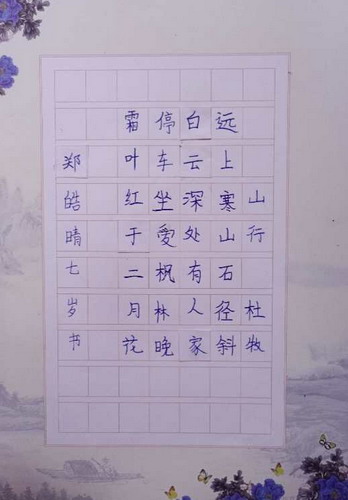 山行 杜牧
远上寒山石径斜
白云深处有人家
停车坐愛枫林晚
霜叶红于二月花
郑皓晴七岁书